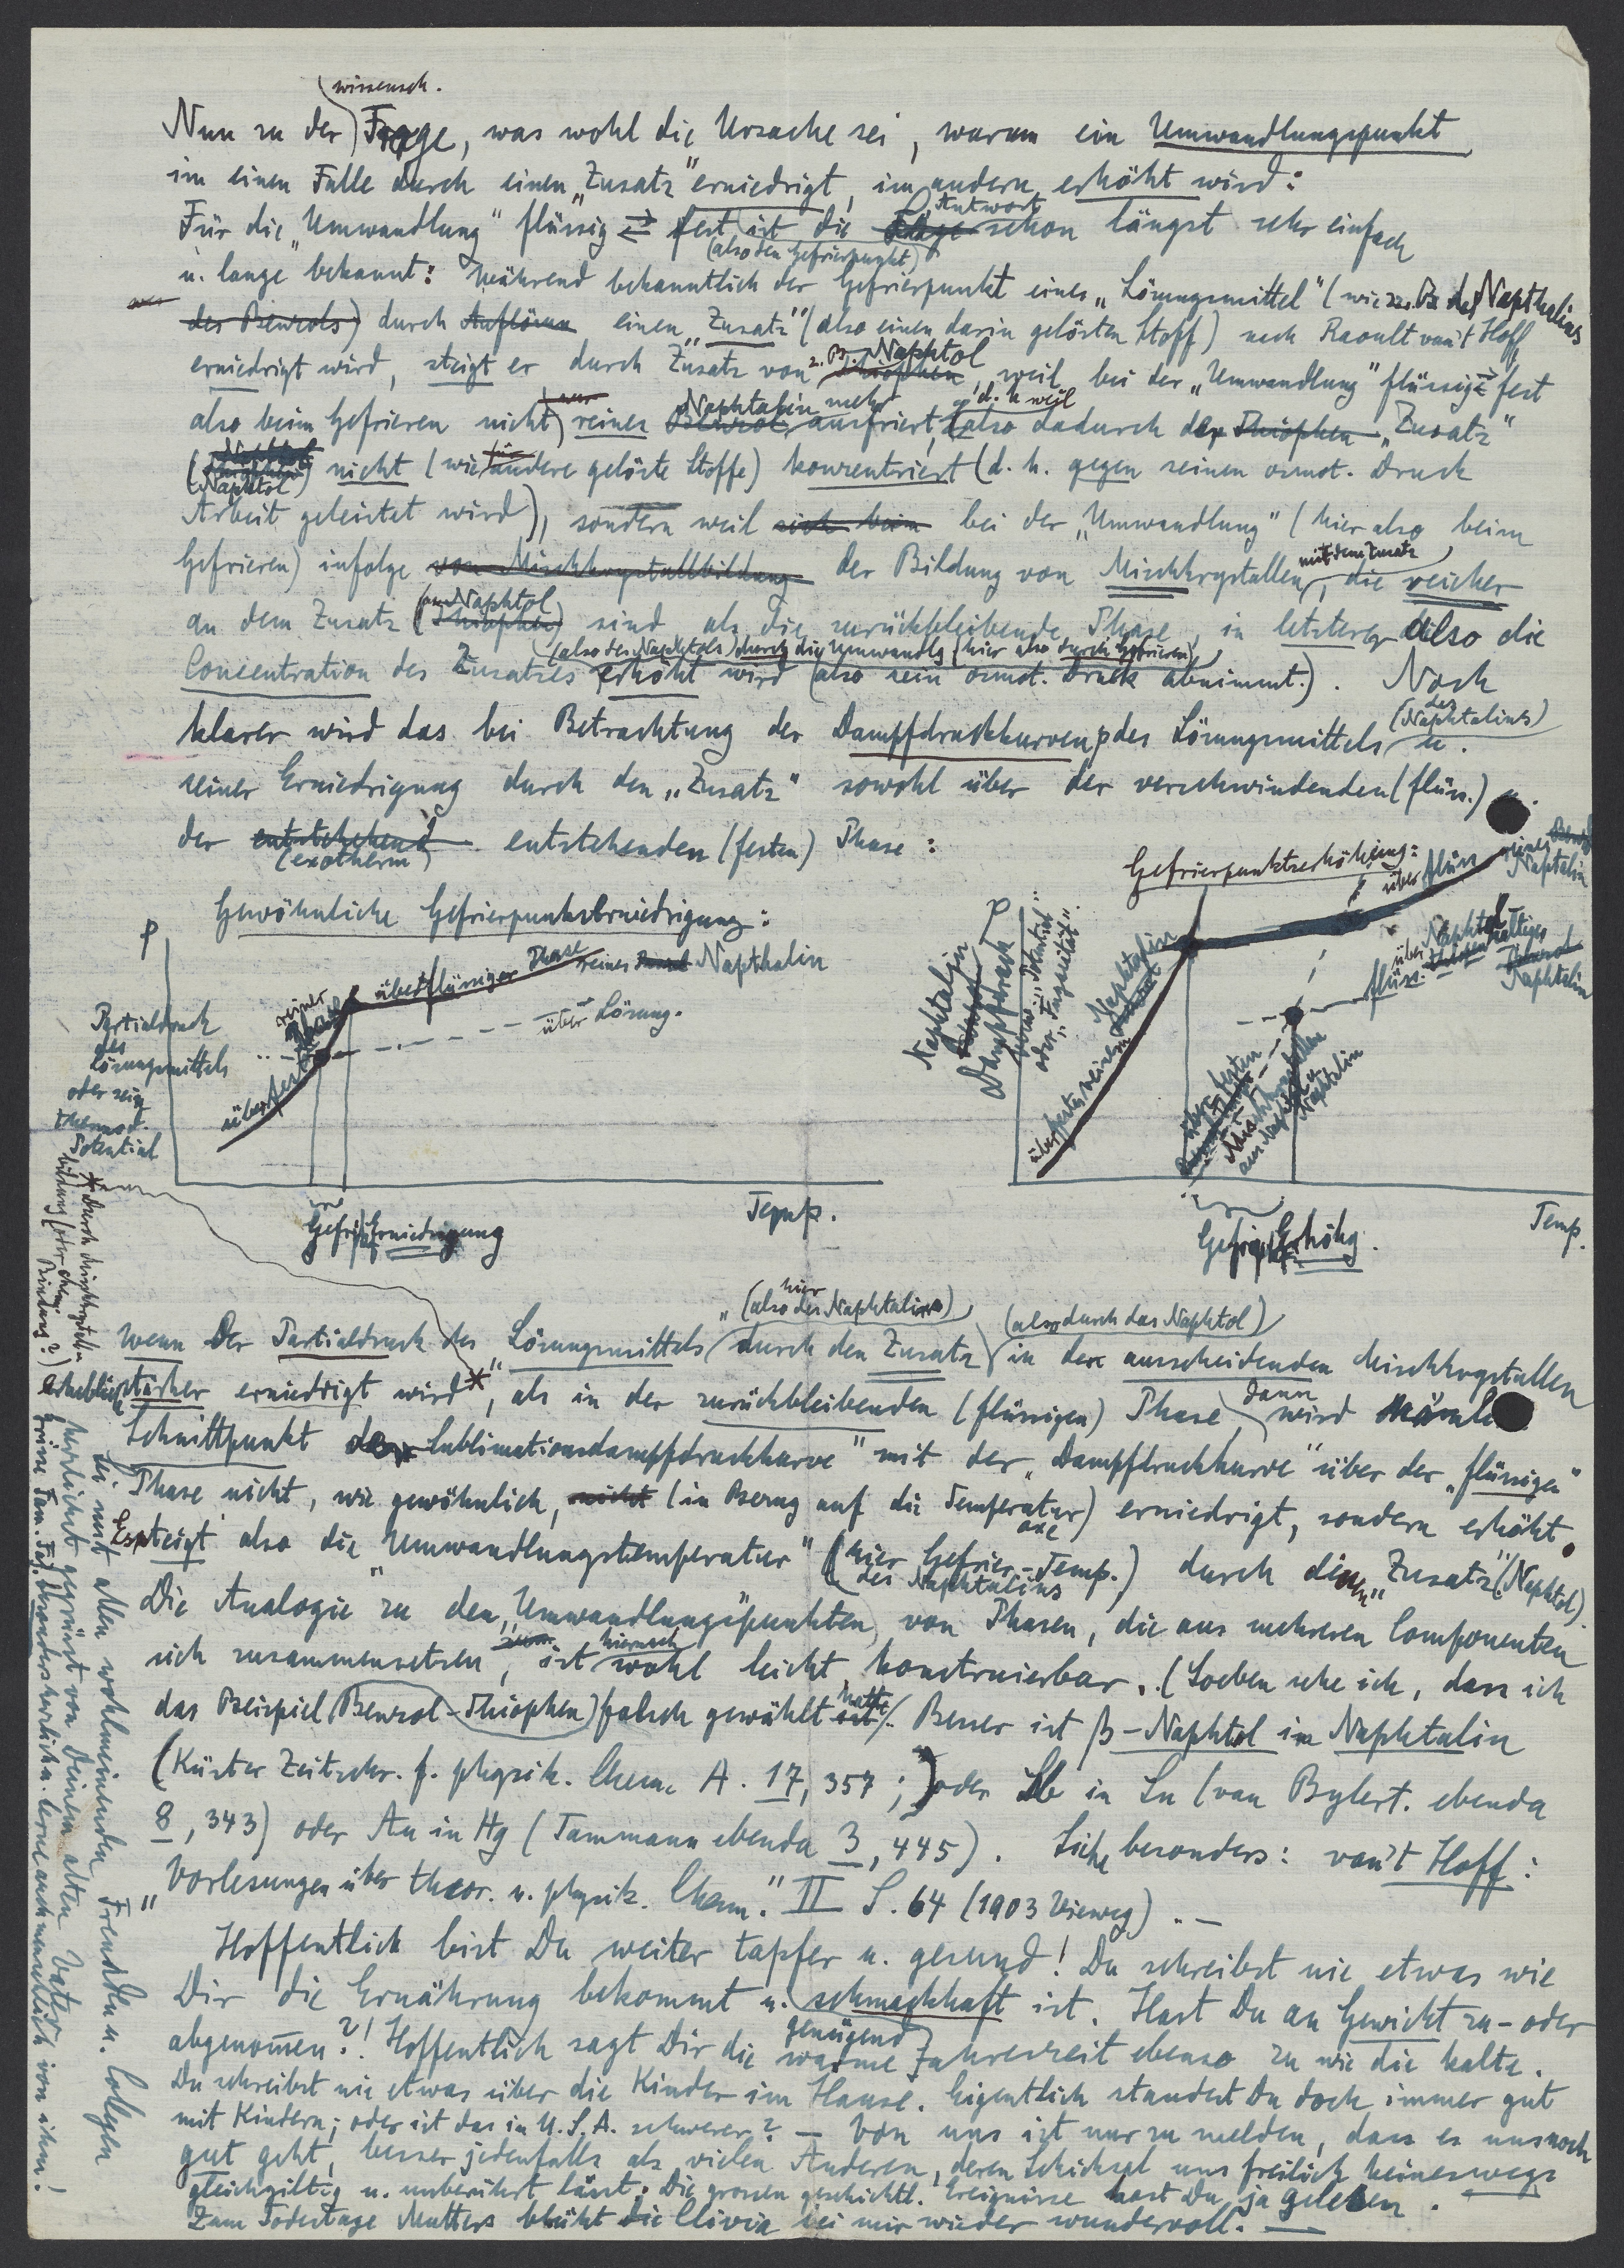 wissensch.
Nun zu der Frage, was wohl die Ursache sei, warum ein Umwandlungspunkt
im einen Falle durch einen „Zusatz" erniedrigt, im andern erhöht wird:
Für die „Umwandlung" flüssig ⇄ fest ist die Frage Antwort schon längst sehr einfach
(also den Gefrierpunkt)
u. lange bekannt: Während bekanntlich der Gefrierpunkt eines „Lösungsmittel" (wie z. B. des Napthalins
des Benzols) durch Auflösen einen „Zusatz" (also einen darin gelösten Stoff) nach Raoult van't Hoff
erniedrigt wird, steigt er durch Zusatz von z. B. Naphtol Thiophen, weil bei der „Umwandlung" flüssig ⇄ fest
also beim Gefrieren nicht nur reines Benzol Naphtalin mehr ausfriert, d. h. weil also dadurch der Thiophen „Zusatz"
(Naphtol) nicht (wie für andere gelöste Stoffe) konzentriert (d. h. gegen seinen osmot. Druck
Arbeit geleistet wird), sondern weil sich beim bei der „Umwandlung" (hier also beim
Gefrieren) infolge von Mischkrystallbildung der Bildung von Mischkrystallen mit dem Zusatz, die reicher
an dem Zusatz (am Naphtol Thiophen) sind als die zurückbleibende Phase, in letzterer also die
(also des Naphtols) durch die Umwandlg (hier also durch Gefrieren)
Concentration des Zusatzes erhöht wird (also sein osmot. Druck abnimmt.). Noch
klarer wird das bei Betrachtung der Dampfdruckkurven p des Lösungsmittels (des Naphtalins) u.
seiner Erniedrigung durch den „Zusatz" sowohl über der verschwindenden (flüss.) u.
der entstehend entstehenden (festen) Phase:
(exotherm)
Gewöhnliche Gefrierpunktserniedrigung:
p
über flüssiger Phase reines Benzol Napthalin
über Lösung.
reiner Phase
über fester
Partialdruck
des
Lösungsmittels
oder sein
thermod.
Potential
Gefrierpkt Erniedrigung
Temp.
Gefrierpunktserhöhung:
p
über flüss. reines Benzol Naphtalin
Naphtalin
Dampfdruck
sowie „Potential"
oder „Fugazität".
über festem reinem Naphtalin
über Naphtol haltiges
flüss. Naphtalin
über festen
Mischkrystallen
aus Naphtol u.
Naphtalin
Gefrierpkt Erhöhg.
Temp.
hier
(also des Naphtalins) (also durch das Naphtol)
Wenn der Partialdruck des „Lösungsmittels" durch den Zusatz in den ausscheidenden Mischkrystallen
erheblich stärker erniedrigt wird*, als in der zurückbleibenden (flüssigen) Phase, dann wird
Schnittpunkt der „Sublimationsdampfdruckkurve" mit der „Dampfdruckkurve" über der „flüssigen"
Phase nicht, wie gewöhnlich, nicht (in Bezug auf die Temperatur axe) erniedrigt, sondern erhöht.
Es steigt also die „Umwandlungstemperatur" (hier Gefrier-Temp. des Naphtalins) durch den „Zusatz" (Naphtol).
Die Analogie zu den „Umwandlungspunkten" von Phasen, die aus mehreren Componenten
sich zusammensetzen, ist hiernach wohl leicht konstruierbar. (Soeben sehe ich, dass ich
das Beispiel (Benzol-Thiophen) falsch gewählt hatte. Besser ist β-Naphtol in Naphtalin
(Küster Zeitschr. f. physik. Chem. A. 17, 357;) oder Sb in Sn (van Bylert. ebenda
8, 343) oder Au in Hg (Tammann ebenda 3, 445). Siehe besonders: van't Hoff:
„Vorlesungen über theor. u. physik. Chem." II S. 64 (1903 Vieweg). —
Hoffentlich bist Du weiter tapfer u. gesund! Du schreibst nie etwas wie
Dir die Ernährung bekommt u. schmackhaft ist. Hast Du an Gewicht zu- oder
abgenom̅en?! Hoffentlich sagt Dir die genügend warme Jahreszeit ebenso zu wie die kalte.
Du schreibst nie etwas über die Kinder im Hause. Eigentlich standest Du doch immer gut
mit Kindern; oder ist das in U.S.A. schwerer? — Von uns ist nur zu melden, dass es uns noch
gut geht, besser jedenfalls als vielen Anderen, deren Schicksal uns freilich keineswegs
gleichgiltig u. unberührt lässt. Die grossen geschichtl. Ereignisse hast Du ja gelesen.
Zum Todestage Mutters blüht die Clivia bei mir wieder wundervoll. —
* durch Mischkrystall-
bildung (oder chem.
Bindung?)
Sei mit allen wohlmeinenden Freunden u. Collegen
herzlichst gegrüsst von Deinem alten Vater
grüsse Fam. besonders herzlich u. lerne auch menschlich von ihm!